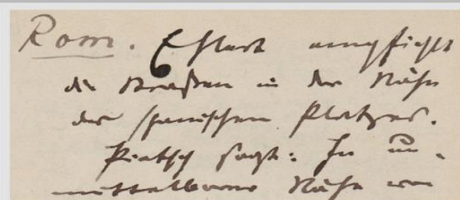 Rom. Ehlert empfiehlt
die Straßen in der Nähe
des spanischen Platzes.
Pietsch sagt: In un-
mittelbarer Nähe von